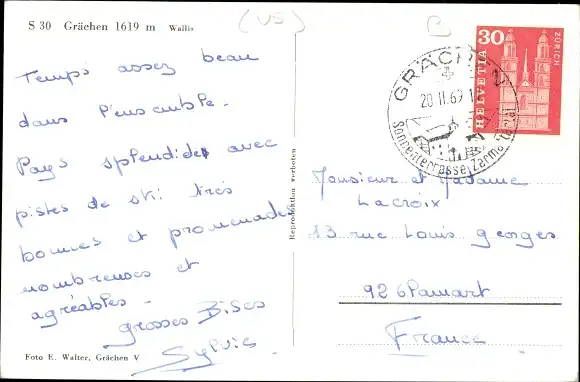 S 30 Grächen 1619 m Wallis
(US)
B
Temps assez beau
dans l'ensemble.
Pays splendides avec
pistes de ski très
bonnes et promenades
nombreuses et
agréables.
grosses Bises
Sylvie
Foto E. Walter, Grächen V
Reproduktion verboten
GRÄCHEN
20.11.69.1
Sonnenterrasse Zermattertal
30
HELVETIA
ZÜRICH
Monsieur et Madame
Lacroix
13 rue Louis georges
92 Clamart
France